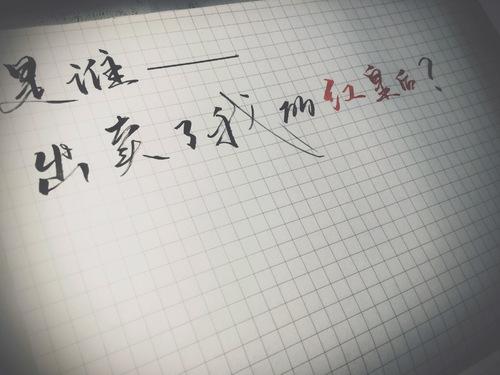 是谁——
出卖了我的红皇后？